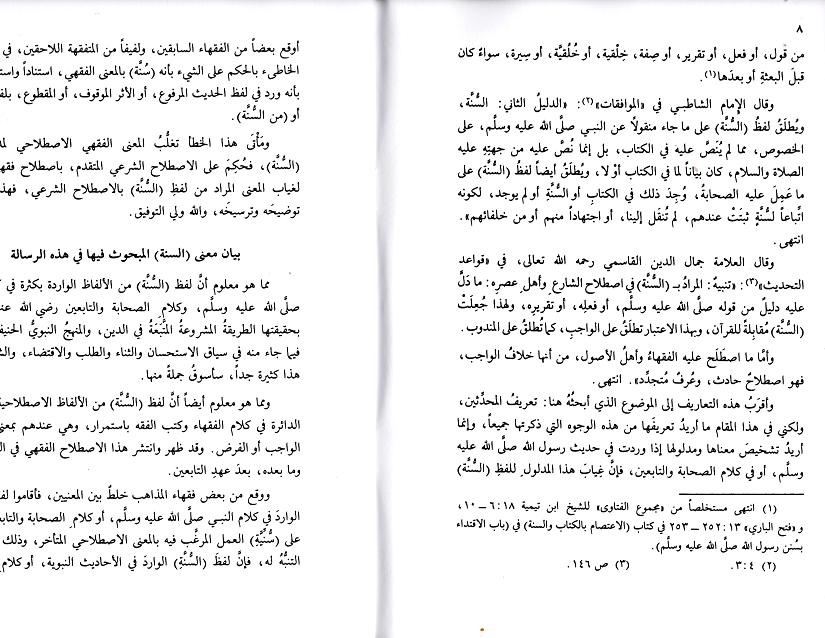 ٨
من قول، أو فعل، أو تقرير، أو صِفة، خِلْقية، أو خُلُقيَّة، أو سِيرة، سواءً كان
قبلَ البعثةِ أو بعدَها(١).
وقال الإمام الشاطبي في «الموافقات»(٢): «الدليلُ الثاني: السُّنَّة،
ويُطلَقُ لفظُ (السُّنَّة) على ما جاء منقولاً عن النبـي صلَّى الله عليه وسلَّم، على
الخصوص، مما لم يُنَصَّ عليه في الكتاب، بل إنما نُصَّ عليه من جهتِهِ عليه
الصلاة والسلام، كان بياناً لما في الكتاب أوْ لا، ويُطلَقُ أيضاً لفظُ (السُّنَّة) على
ما عَمِلَ عليه الصحابةُ، وُجِدَ ذلك في الكتابِ أو السُّنَّةِ أو لم يوجد، لكونه
اتِّباعاً لسُنَّةٍ ثبتَتْ عندهم، لم تُنقَل إلينا، أو اجتهاداً منهم أو من خلفائهم».
انتهى.
وقال العلامة جمال الدين القاسمي رحمه الله تعالى، في «قواعد
التحديث»(٣): «تنبيهٌ: المرادُ بـ (السُّنَّة) في اصطلاح الشارع وأهلِ عصرِه: ما دَلَّ
عليه دليلٌ من قوله صلَّى الله عليه وسلَّم، أو فعلِه، أو تقريرِه، ولهذا جُعِلَتْ
(السُّنَّة) مُقابِلةً للقرآن، وبهذا الاعتبار تطلَقُ على الواجب، كما تُطلَقُ على المندوب.
وأمَّا ما اصطَلَح عليه الفقهاءُ وأهلُ الأصول، من أنها خلافُ الواجب،
فهو اصطلاحٌ حادث، وعُرفٌ مُتجدِّد». انتهى.
وأقرَبُ هذه التعاريف إلى الموضوع الذي أبحثُهُ هنا: تعريفُ المحدِّثين،
ولكني في هذا المقام ما أريدُ تعريفَها من هذه الوجوه التي ذكرتها جميعاً، وإنما
أريدُ تشخيصَ معناها ومدلولها إذا وردت في حديث رسول الله صلَّى الله عليه
وسلَّم، أو في كلام الصحابة والتابعين، فإنَّ غِيابَ هذا المدلولِ للفظِ (السُّنَّة)
(١) انتهى مستخلصاً من «مجموع الفتاوى» للشيخ ابن تيمية ١٨:٦ ــ ١٠،
و«فتح الباري» ١٣:٢٥٢ ــ ٢٥٣ في كتاب (الاعتصام بالكتاب والسنة) في (باب الاقتداء
بسُنن رسول الله صلى الله عليه وسلَّم).
(٢) ٤:٣. (٣) ص ١٤٦.
أوقع بعضاً من الفقهاء السابقين، ولفيفاً من المتفقهة اللاحقين، في
الخاطىء بالحكم على الشيء بأنه (سُنَّة) بالمعنى الفقهي، استناداً
بأنه ورد في لفظ الحديث المرفوع، أو الأثر الموقوف، أو المقطوع،
أو (من السُّنَّة).
ومَأْتَى هذا الخطأ تغلُّبُ المعنى الفقهي الاصطلاحي
(السُّنَّة)، فحُكِمَ على الاصطلاح الشرعي المتقدم، باصطلاح
لغياب المعنى المراد من لفظِ (السُّنَّة) بالاصطلاح الشرعي،
توضيحَه وترسيخَه، والله ولي التوفيق.
بيان معنى (السنة) المبحوث فيها في هذه الرسالة
مما هو معلوم أنَّ لفظ (السُّنَّة) من الألفاظ الواردة بكثرة في
صلَّى الله عليه وسلَّم، وكلامِ الصحابة والتابعين رضي الله
بحقيقتها الطريقةُ المشروعةُ المتَّبَعَةُ في الدين، والمنهجُ النبويُّ
فيما جاء منه في سياق الاستحسان والثناء والطلب والاقتضاء،
هذا كثيرة جداً، سأسوقُ جملةً منها.
ومما هو معلوم أيضاً أنَّ لفظ (السُّنَّة) من الألفاظ
الدائرة في كلام الفقهاء وكتب الفقه باستمرار، وهي عندهم
الواجب أو الفرض. وقد ظهر وانتشر هذا الاصطلاح الفقهي في
وما بعده، بعدَ عهدِ التابعين.
ووقع من بعض فقهاء المذاهب خلطٌ بين المعنيين، فأقاموا
الواردَ في كلام النبـي صلَّى الله عليه وسلَّم، أو كلامِ الصحابة
على (سُنِّيَّةِ) العمل المرغَّبِ فيه بالمعنى الاصطلاحي المتأخر، وذلك
التنبُّهُ له، فإنَّ لفظَ (السُّنَّةِ) الواردَ في الأحاديث النبوية، أو كلام